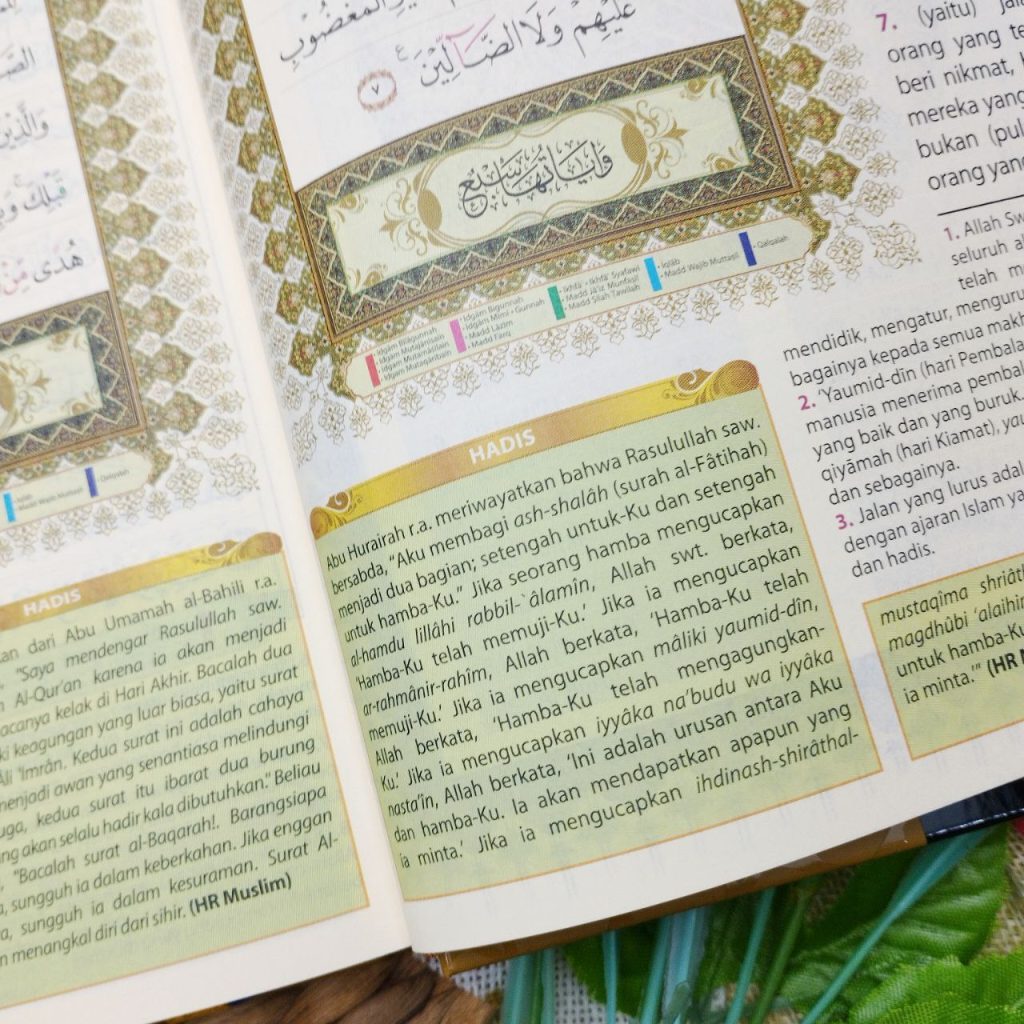 الصِّ
وَالَّذِيْنَ
قَبْلِكَ وَ
هُدًى مِّنْ
Iqlāb
Madd Wajib Muttasil
Qalqalah
HADIS
an dari Abu Umamah al-Bahili r.a.
"Saya mendengar Rasulullah saw.
Al-Qur'an karena ia akan menjadi
acanya kelak di Hari Akhir. Bacalah dua
ki keagungan yang luar biasa, yaitu surat
Ali 'Imrân. Kedua surat ini adalah cahaya
menjadi awan yang senantiasa melindungi
uga, kedua surat itu ibarat dua burung
ng akan selalu hadir kala dibutuhkan." Beliau
"Bacalah surat al-Baqarah!. Barangsiapa
a, sungguh ia dalam keberkahan. Jika enggan
a, sungguh ia dalam kesuraman. Surat Al-
n menangkal diri dari sihir. (HR Muslim)
الْمَغْضُوْبِ
عَلَيْهِمْ وَلَا الضَّاۤلِّيْنَ ع ٧
وَاٰيَاتُهَا سَبْعٌ
• Idgām Bilāgunnah
• Idgām Mutajānisain
• Idgām Mutamāṡilain
• Idgām Mutaqāribain
• Idgām Bigunnah
• Idgām Mimi • Gunnah
• Madd Lāzim
• Madd Farq
• Ikhfā' • Ikhfā' Syafawi
• Madd Jā'iz Munfaṣil
• Madd Ṣilah Ṭawīlah
• Iqlāb
• Madd Wajib Muttaṣil
• Qalqalah
HADIS
Abu Hurairah r.a. meriwayatkan bahwa Rasulullah saw.
bersabda, "Aku membagi ash-shalâh (surah al-Fâtihah)
menjadi dua bagian; setengah untuk-Ku dan setengah
untuk hamba-Ku." Jika seorang hamba mengucapkan
al-hamdu lillâhi rabbil-`âlamîn, Allah swt. berkata,
'Hamba-Ku telah memuji-Ku.' Jika ia mengucapkan
ar-rahmânir-rahîm, Allah berkata, 'Hamba-Ku telah
memuji-Ku.' Jika ia mengucapkan mâliki yaumid-dîn,
Allah berkata, 'Hamba-Ku telah mengagungkan-
Ku.' Jika ia mengucapkan iyyâka na'budu wa iyyâka
nasta'în, Allah berkata, 'Ini adalah urusan antara Aku
dan hamba-Ku. Ia akan mendapatkan apapun yang
ia minta.' Jika ia mengucapkan ihdinash-shirâthal-
7. (yaitu) jal
orang yang te
beri nikmat,
mereka yang
bukan (pul
orang yang
1. Allah Sw
seluruh al
telah m
mendidik, mengatur, mengurus
bagainya kepada semua makh
2. 'Yaumid-dîn (hari Pembala
manusia menerima pembal
yang baik dan yang buruk.
qiyâmah (hari Kiamat), yau
dan sebagainya.
3. Jalan yang lurus adal
dengan ajaran Islam ya
dan hadis.
mustaqîma shriâth
magdhûbi 'alaihim
untuk hamba-Ku
ia minta.'" (HR M